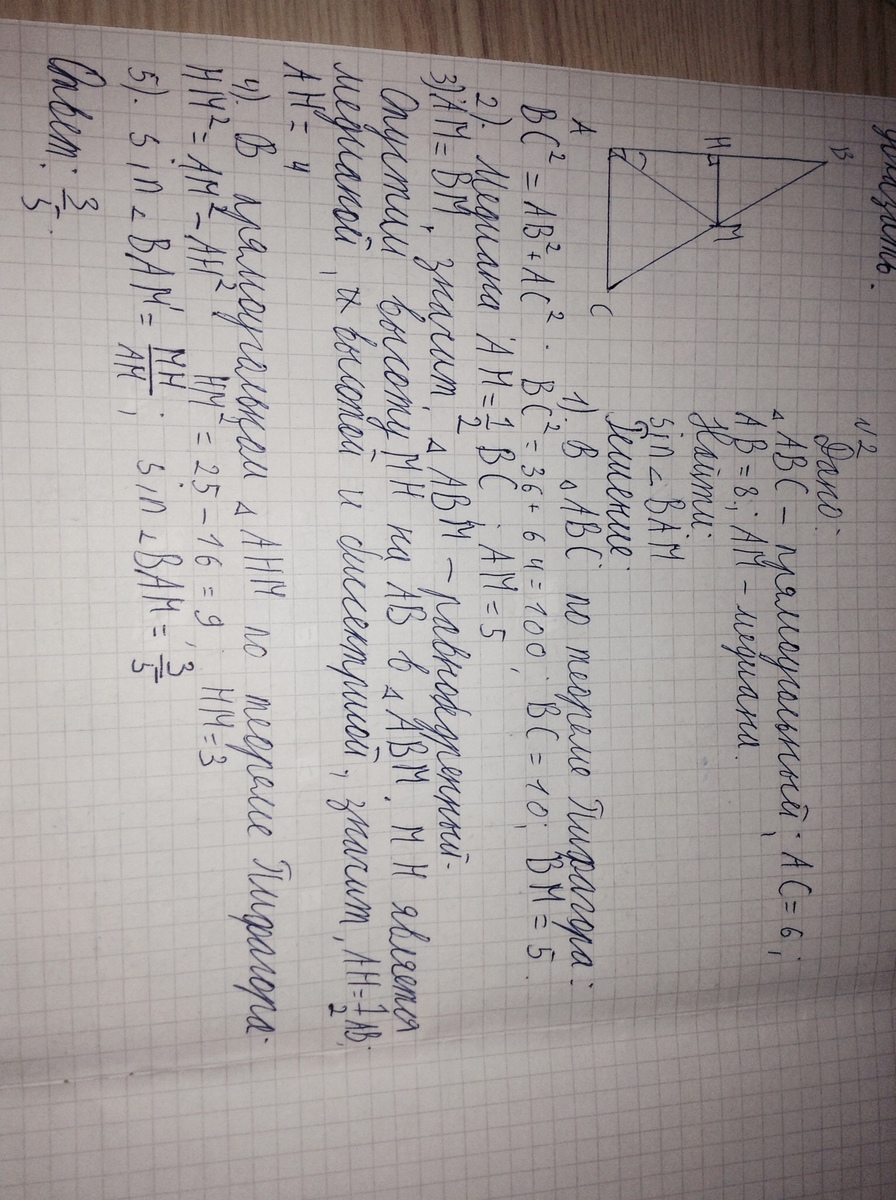 доказать.
№2
Дано:
△ABC – прямоугольный; AC = 6;
AB = 8; AM – медиана.
Найти:
sin∠BAM
Решение:
B
H
M
A
C
1). В △ABC по теореме Пифагора:
BC² = AB² + AC². BC² = 36 + 64 = 100; BC = 10; BM = 5.
2). Медиана AM = 1/2 BC; AM = 5
3) AM = BM, значит △ABM – равнобедренный.
Опустим высоту MH на AB в △ABM. MH является
медианой, и высотой и биссектрисой, значит, AH = 1/2 AB;
AH = 4
4). В прямоугольном △AHM по теореме Пифагора:
HM² = AM² – AH² HM² = 25 – 16 = 9; HM = 3
5). sin∠BAM = MH/AM; sin∠BAM = 3/5
Ответ: 3/5.